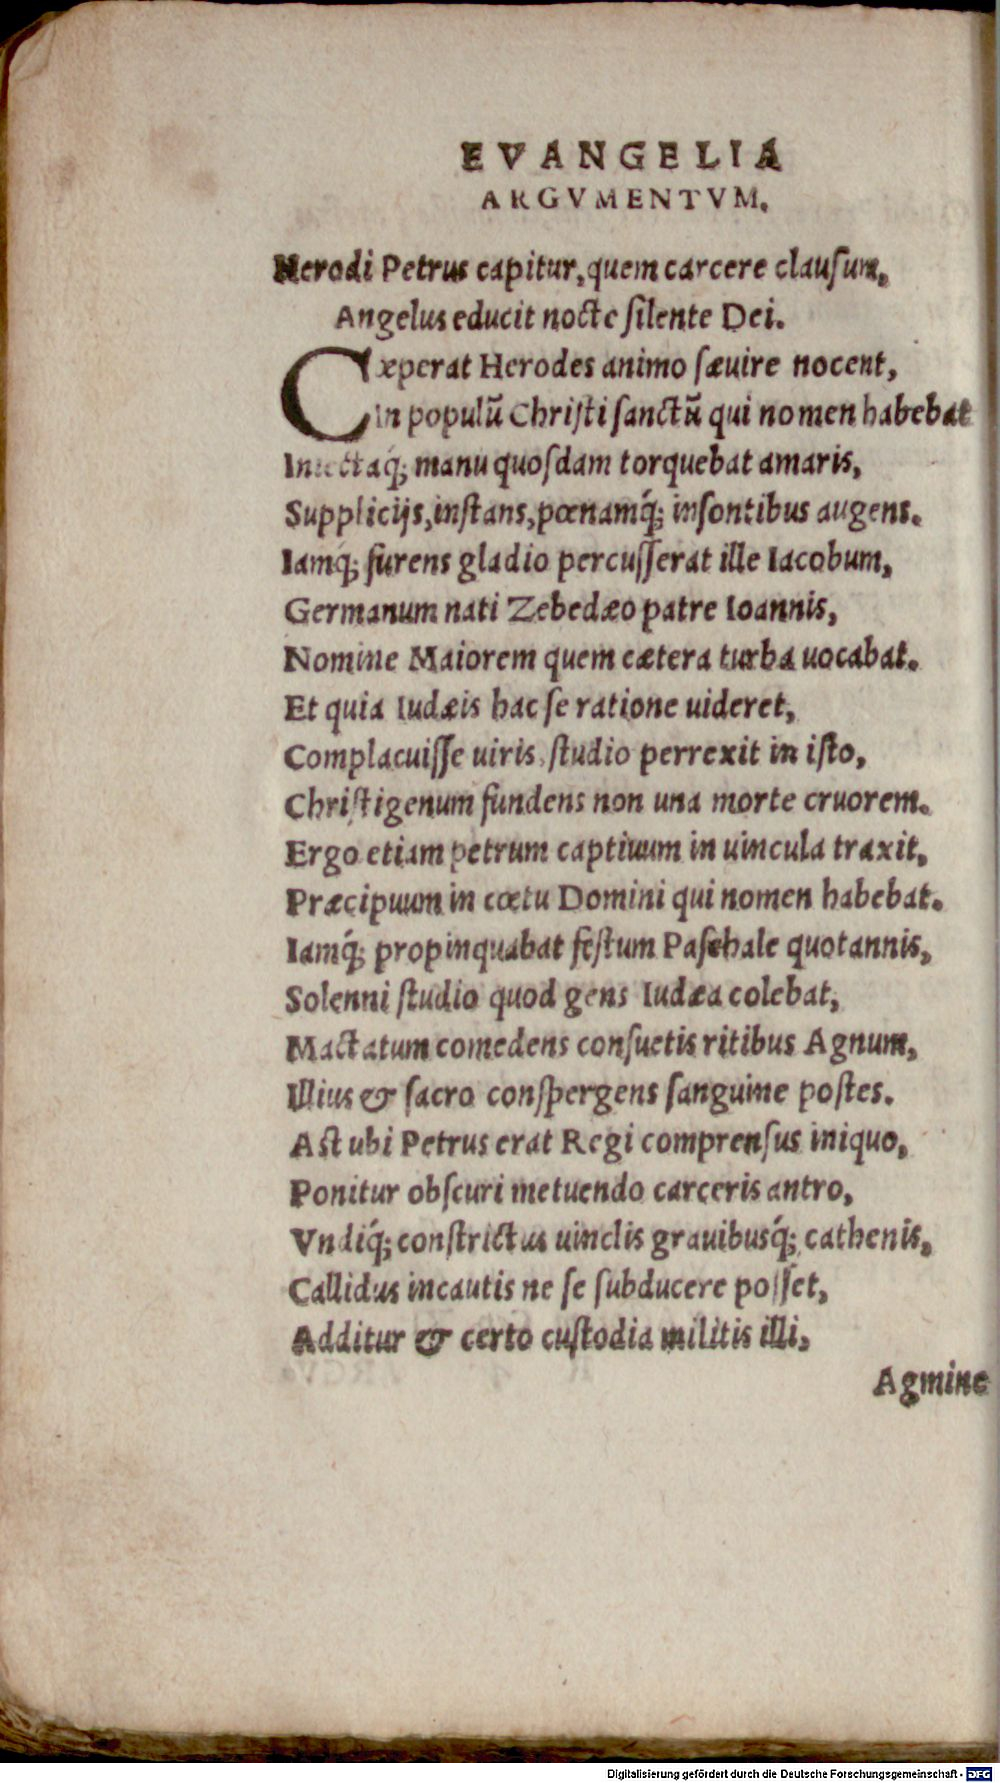 EVANGELIA
ARGVMENTVM.
Herodi Petrus capitur, quem carcere clauſum,
Angelus educit nocte ſilente Dei.
Cæperat Herodes animo ſæuire nocent,
In populũ Chriſti ſanctũ qui nomen habebat
Iniectaq́; manu quoſdam torquebat amaris,
Supplicijs, inſtans, pœnamq́; inſontibus augens.
Iamq́; furens gladio percuſſerat ille Iacobum,
Germanum nati Zebedæo patre Ioannis,
Nomine Maiorem quem cætera turba uocabat.
Et quia Iudæis hac ſe ratione uideret,
Complacuiſſe uiris, ſtudio perrexit in iſto,
Chriſtigenum fundens non una morte cruorem.
Ergo etiam petrum captiuum in uincula traxit,
Præcipuum in cœtu Domini qui nomen habebat.
Iamq́; propinquabat feſtum Paſchale quotannis,
Solenni ſtudio quod gens Iudæa colebat,
Mactatum comedens conſuetis ritibus Agnum,
Illius & ſacro conſpergens ſanguine poſtes.
Aſt ubi Petrus erat Regi comprenſus iniquo,
Ponitur obſcuri metuendo carceris antro,
Vndiq́; conſtrictus uinclis grauibusq́; cathenis,
Callidus incautis ne ſe ſubducere poſſet,
Additur & certo cuſtodia militis illi,
Agmine
Digitalisierung gefördert durch die Deutsche Forschungsgemeinschaft - DFG